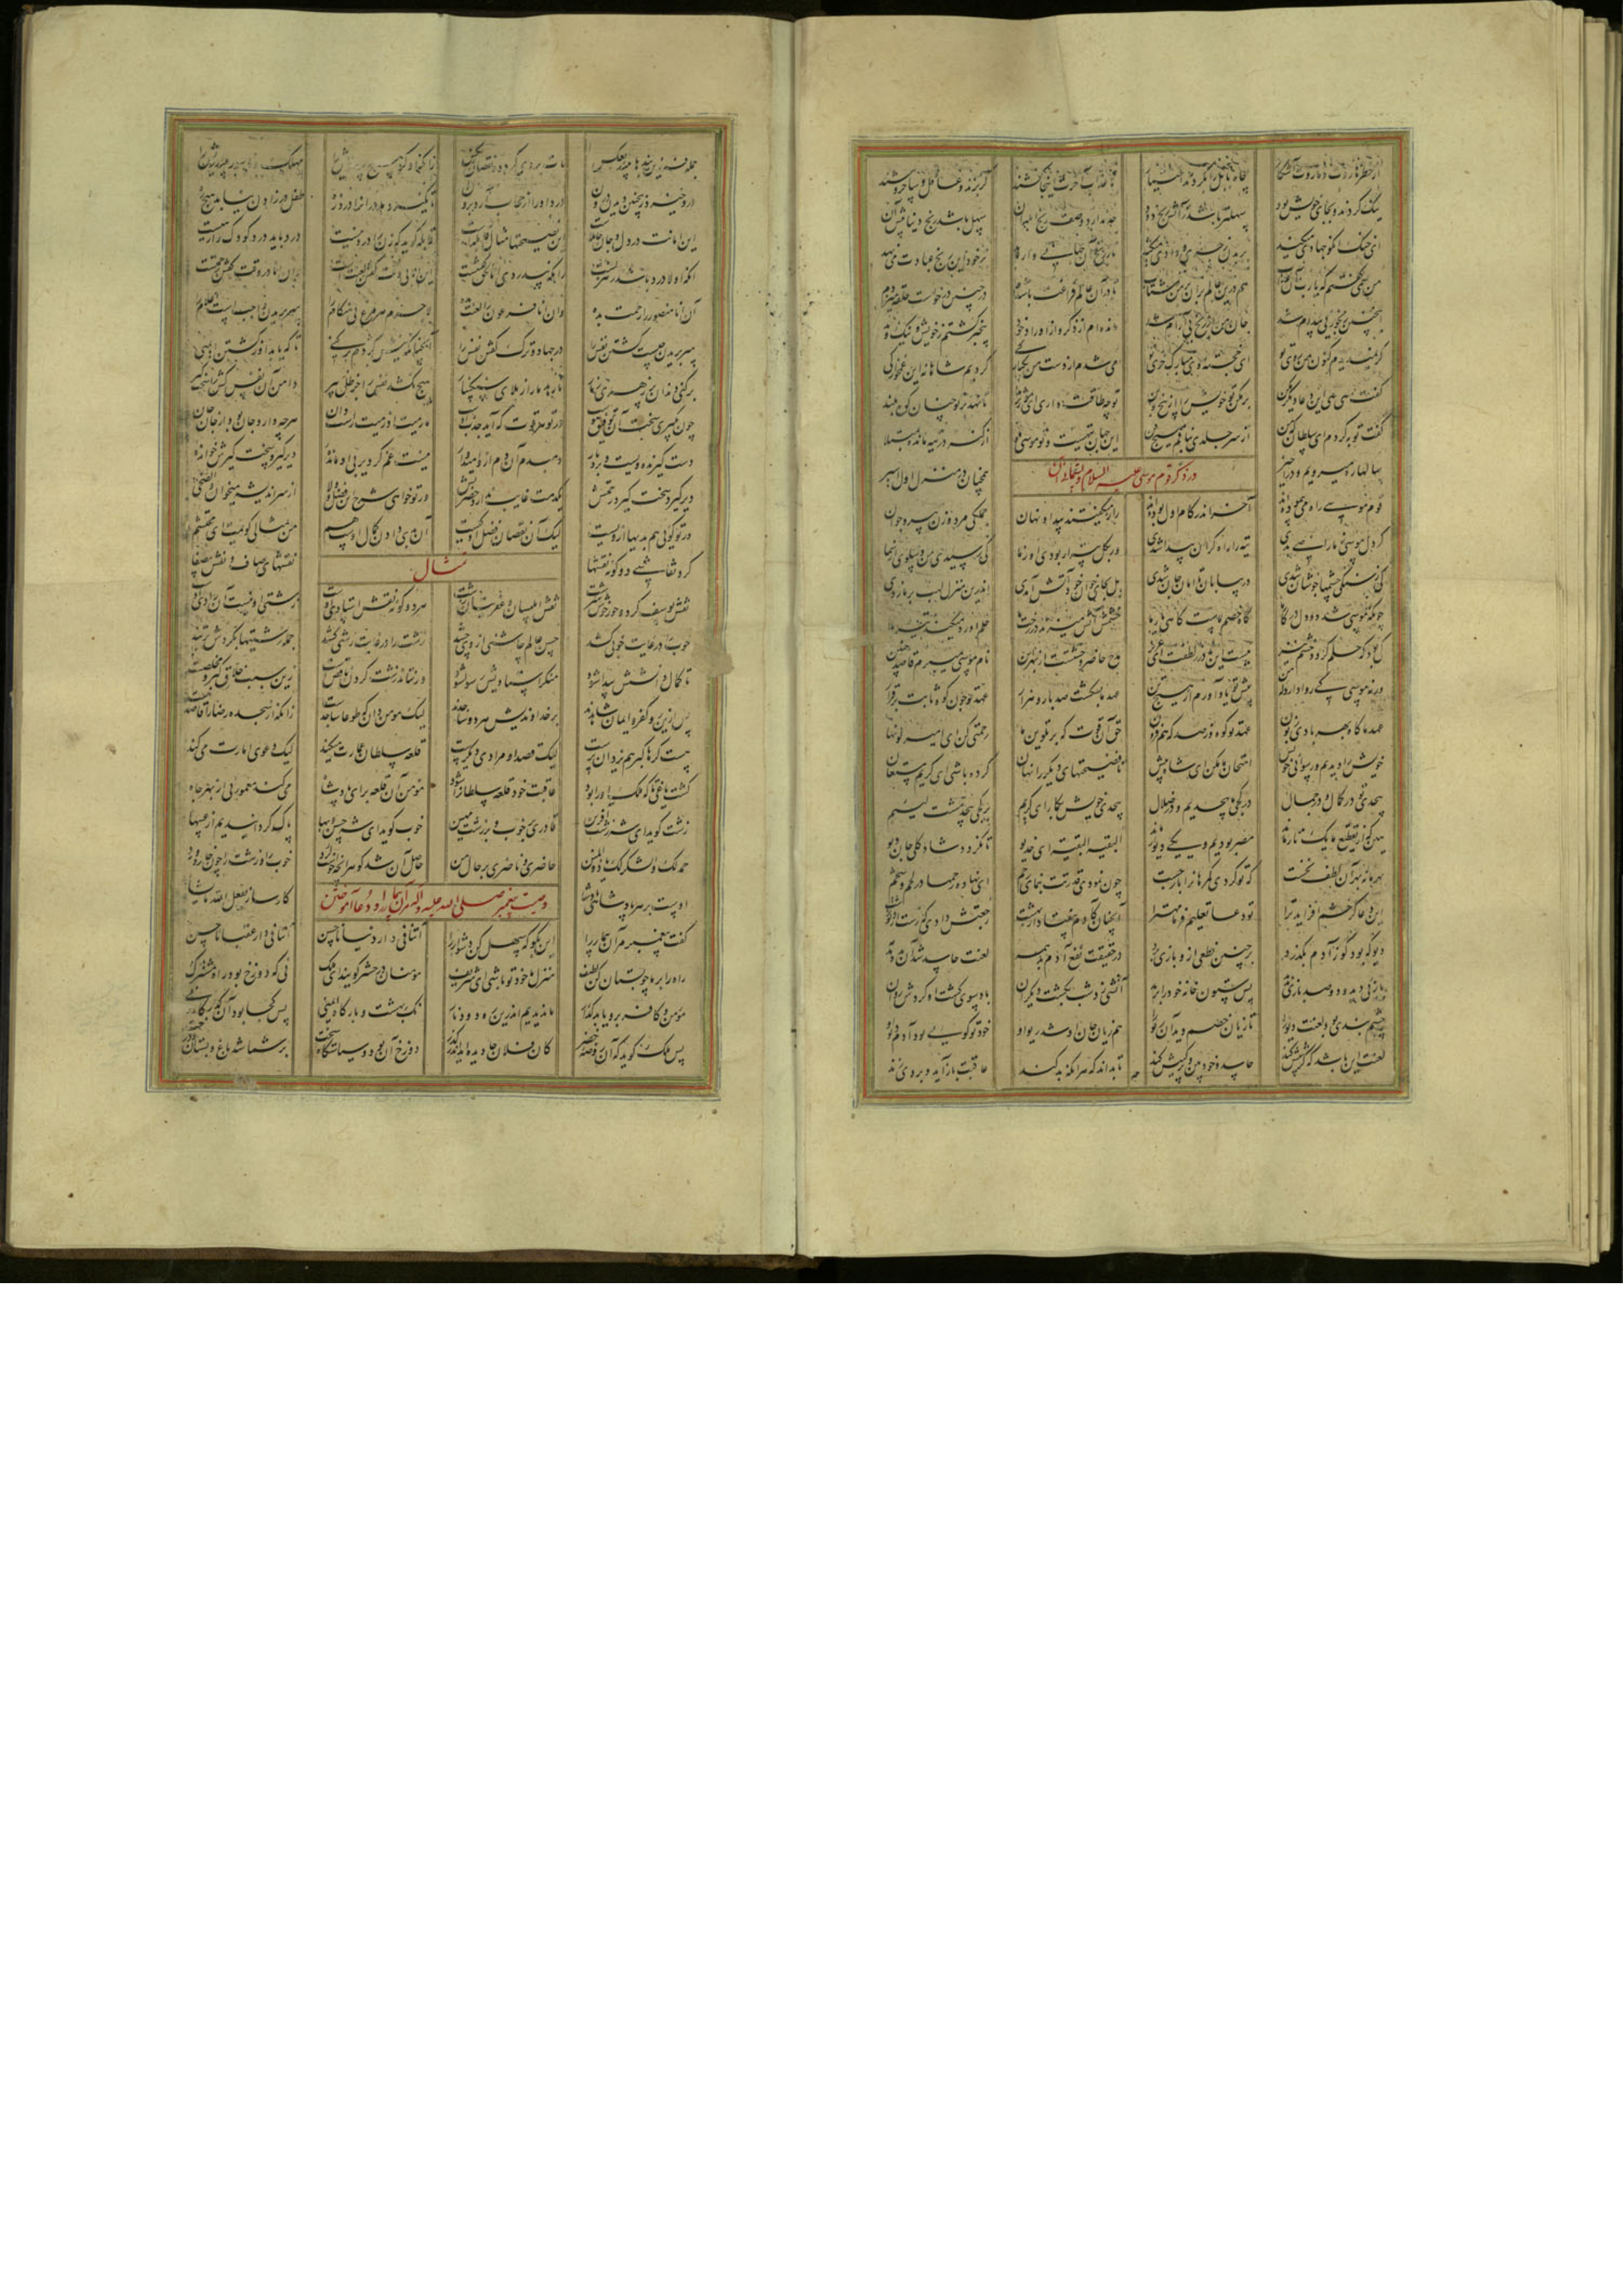 از خطر هاروت و ماروت آشکار چاه بابل را بکردند اختیار تا عذاب آخرت اینجا کشند گربزند و عاقل و ساحروشند
نیک کردند و بجای خویش بود سهلتر باشد ز آتش رنج دود حد ندارد وصف رنج آن جهان سهل باشد رنج دنیا پیش آن
ای خنک آنکو جهادی میکند بر بدن زجری و دادی میکند تا ز رنج آن جهانی وا رهد بر خود این رنج عبادت می نهد
من همی گفتم که یارب آن عذاب هم درین عالم بران بر من شتاب تا در آن عالم فراغت باشدم در چنین درخواست حلقه میزدم
اینچنین رنجوری پیدام شد جان من از رنج بی آرام شد مانده ام از ذکر و از اوراد خود بیخبر گشتم ز خویش و نیک و بد
گر نمیدیدم کنون من روی تو ای خجسته وی مبارک خوی تو می شدم از دست من یکبارگی کردیم شاهانه این غمخوارگی
گفت هی هی این دعا دیگر مکن بر مکن تو خویش را از بیخ و بن تو چه طاقت داری ای مور نژند تا نهد بر تو چنان کوه بلند
گفت توبه کردم ای سلطان که من از سر جلدی نلافم هیچ فن این جهان تیهست و تو موسی و ما از گنه در تیه مانده مبتلا
در ذکر قوم موسی علیه السلام و پشیمانی آن
سالها ره میرویم و در اخیر همچنان در منزل اول اسیر
قوم موسی راه می پیموده اند آخر اندر گام اول بوده اند راز میگفتند پیدا و نهان جملگی مرد و زن پیر و جوان
گر دل موسی ز ما راضی بدی تیه را راه کران پیدا شدی ور بکل بیزار بودی او ز ما کی رسیدی من و سلوی از سما
کی ز سنگی چشمها جوشان شدی در بیابان ها امان جان شدی بل بجای خوان خود آتش آمدی اندرین منزل لهب بر ما زدی
چونکه موسی شد دو دل در کار ما گاه خصم ماست گاهی یار ما خشمش آتش میزند در رخت ما حلم او رد میکند تیر بلا
کی بود که حلم گردد خشم تیز نیست این نادر ز لطفت ای عزیز مدح حاضر وحشتست از بهر این نام موسی میبرم قاصد چنین
ورنه موسی کی روا دارد که من پیش تو یاد آورم از هیچ تن عهد ما بشکست صد بار و هزار عهد تو چون کوه ثابت برقرار
عهد ما کاه و بهر بادی زبون عهد تو کوه و ز صد که هم فزون حق آن قوت که بر تلوین ما رحمتی کن ای امیر لونها
خویش را دیدیم و رسوائی خویش امتحان ما مکن ای شاه بیش تا فضیحتهای دیگر را نهان کرده باشی ای کریم مستعان
بیحدی تو در کمال و در جمال در کژی ما بیحدیم و در ضلال بیحدی خویش بگمار ای کریم بر کژی بیحد مشت لئیم
هین که از تقطیع ما یک تار ماند مصر بودیم و یکی دیوار ماند البقیه البقیه ای خدیو تا نگردد شاد کلی جان دیو
بهر ما نه بهر آن لطف نخست که تو کردی گمرهان را باز جست چون نمودی قدرتت بنمای رحم ای نهاده رحمها در لحم و شحم
این دعا گر خشم افزاید ترا تو دعا تعلیم فرما مهترا آنچنان کادم بیفتاد از بهشت رجعتش دادی که رست از دیو زشت
دیو که بود کو ز آدم بگذرد بر چنین نطعی ازو بازی برد در حقیقت نفع آدم شد همه لعنت حاسد شد آن دمدمه
بازئی دید و دو صد بازی ندید پس ستون خانه خود را برید آتشی زد شب بکشت دیگران باد سوی کشت او کردش روان
چشم بندی بود لعنت دیو را تا زیان خصم دید آن ریو را هم زیان جان او شد ریو او خود تو گویی بود آدم دیو او
لعنت این باشد که کژبینش کند حاسد و خودبین و پرکینش کند تا بداند که هر آنکه بد کند عاقبت باز آید و بر وی زند
جمله فرزین بندها بیند بعکس مات بر وی گردد و نقصان و وکس زانکه گر او هیچ بیند خویش را مهلک و ناسور بیند ریش را
درد خیزد زین چنین دیدن درون درد او را از حجاب آرد برون تا نگیرد مادران را درد زه طفل در زادن نیابد هیچ ره
این امانت در دل و جان حامله است این نصیحتها مثال قابله است قابله گوید که زن را درد نیست درد باید درد کودک را رهیست
آنکه او بی درد باشد رهزنست زانکه بی دردی انا الحق گفتنست این انا بی وقت گفتن لعنت است وان انا در وقت گفتن رحمتست
آن انا منصور را رحمت شده وان انا فرعون را لعنت شده لاجرم هر مرغ بی هنگام را سر بریدن واجب است اعلام را
سر بریدن چیست کشتن نفس را در جهاد و ترک گفتن نفس را آنچنانکه نیش کژدم برکنی تا که یابد او ز کشتن ایمنی
برکنی دندان پر زهری ز مار تا رهد مار از بلای سنگسار هیچ نکشد نفس را جز ظل پیر دامن آن نفس کش را سخت گیر
چون بگیری سخت آن توفیق هوست در تو هر قوت که آید جذب اوست ما رمیت اذ رمیت راست دان هر چه دارد جان بود از جان جان
دست گیرنده ویست و بردبار دم بدم آن دم ازو امید دار نیست غم گر دیر بی او مانده دیرگیر و سخت گیرش خوانده
دیر گیرد سخت گیرد رحمتش یکدمت غایب ندارد حضرتش ور تو خواهی شرح این فضل و ولا از سر اندیشه میخوان والضحی
ور تو گویی هم بدیها از ویست لیک آن نقصان فضل او کیست آن بدی دادن کمال اوست هم من مثالی گویمت ای محتشم
کرد نقاشی دو گونه نقشها نقشهای صاف و نقش بی صفا
مثال
نقش یوسف کرد و حور خوش سرشت نقش ابلیسان و عفریتان زشت هر دو گونه نقش استادی اوست زشتی او نیست آن رادی اوست
خوب را در غایت خوبی کشد حسن عالم چاشنی از وی چشد زشت را در غایت زشتی کشد جمله زشتیها بگردش بر تند
تا کمال دانشش پیدا شود منکر استادیش رسوا شود ور نتاند زشت کردن ناقص است زین سبب خلاق گبر و مخلص است
پس ازین رو کفر و ایمان شاهدند بر خداوندیش هر دو ساجدند لیک مومن دان که طوعا ساجدست زانکه از سجده رضا را قاصدست
هست کرها گبر هم یزدان پرست لیک قصد او مرادی دیگرست قلعه سلطان عمارت میکند لیک دعوی امارت می کند
گشت یاغی تا که ملک او را بود عاقبت خود قلعه سلطان را شود مومن آن قلعه برای پادشاه می کند معمور نی از بهر جاه
زشت گوید ای شه زشت آفرین قادری بر خوب و بر زشت مهین خوب گوید ای شه حسن و بها پاک گردانیدیم از عیبها
حمد لک والشکر لک یا ذوالمنن حاضری و ناظری بر حال من حاصل آن شد کو هر آنچه خواست کرد خوب را و زشت را چون خار و ورد
اوست بر هر پادشاهی پادشا کارساز یفعل الله ما یشا
وصیت پیغمبر صلی الله علیه و آله مر آن بیمار را و دعا آموختن
گفت پیغمبر مر آن بیمار را این بگو که سهل کن دشوار را آتنا فی دار دنیانا حسن آتنا فی دار عقبانا حسن
راه را بر ما چو بستان کن لطیف منزل ما خود تو باشی ای شریف مؤمنان در حشر گویند ای ملک نی که دوزخ بود راه مشترک
مؤمن و کافر برو یابد گذار ما ندیدیم اندرین ره دود و نار نک بهشت و بارگاه ایمنی پس کجا بود آن گذرگاه دنی
پس ملک گوید که آن روضه خضر کان فلان جا دیده اید اندر گذر دوزخ آن بود و سیاستگاه سخت بر شما شد باغ و بستان و درخت